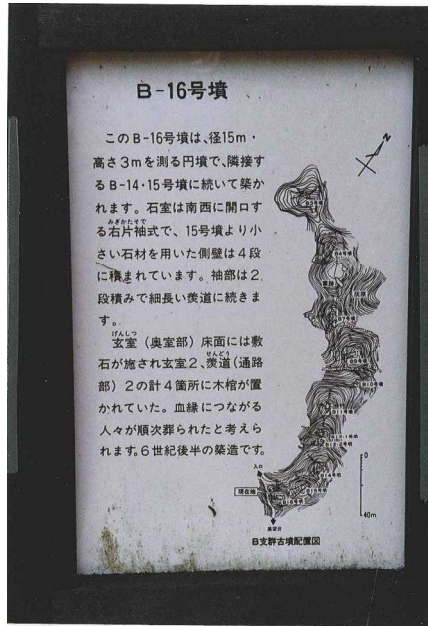 B-16号墳
このB-16号墳は、径15m・
高さ3mを測る円墳で、隣接す
るB-14・15号墳に続いて築か
れます。石室は南西に開口す
みぎかたそで
る右片袖式で、15号墳より小
さい石材を用いた側壁は4段
に積まれています。袖部は2
段積みで細長い羨道に続きま
す。
げんしつ
玄室（奥室部）床面には敷
せんどう
石が施され玄室2、羨道（通路
部）2の計4箇所に木棺が置
かれていた。血縁につながる
人々が順次葬られたと考えら
れます。6世紀後半の築造です。
N
入口
現在地
展望台
0
40m
B支群古墳配置図